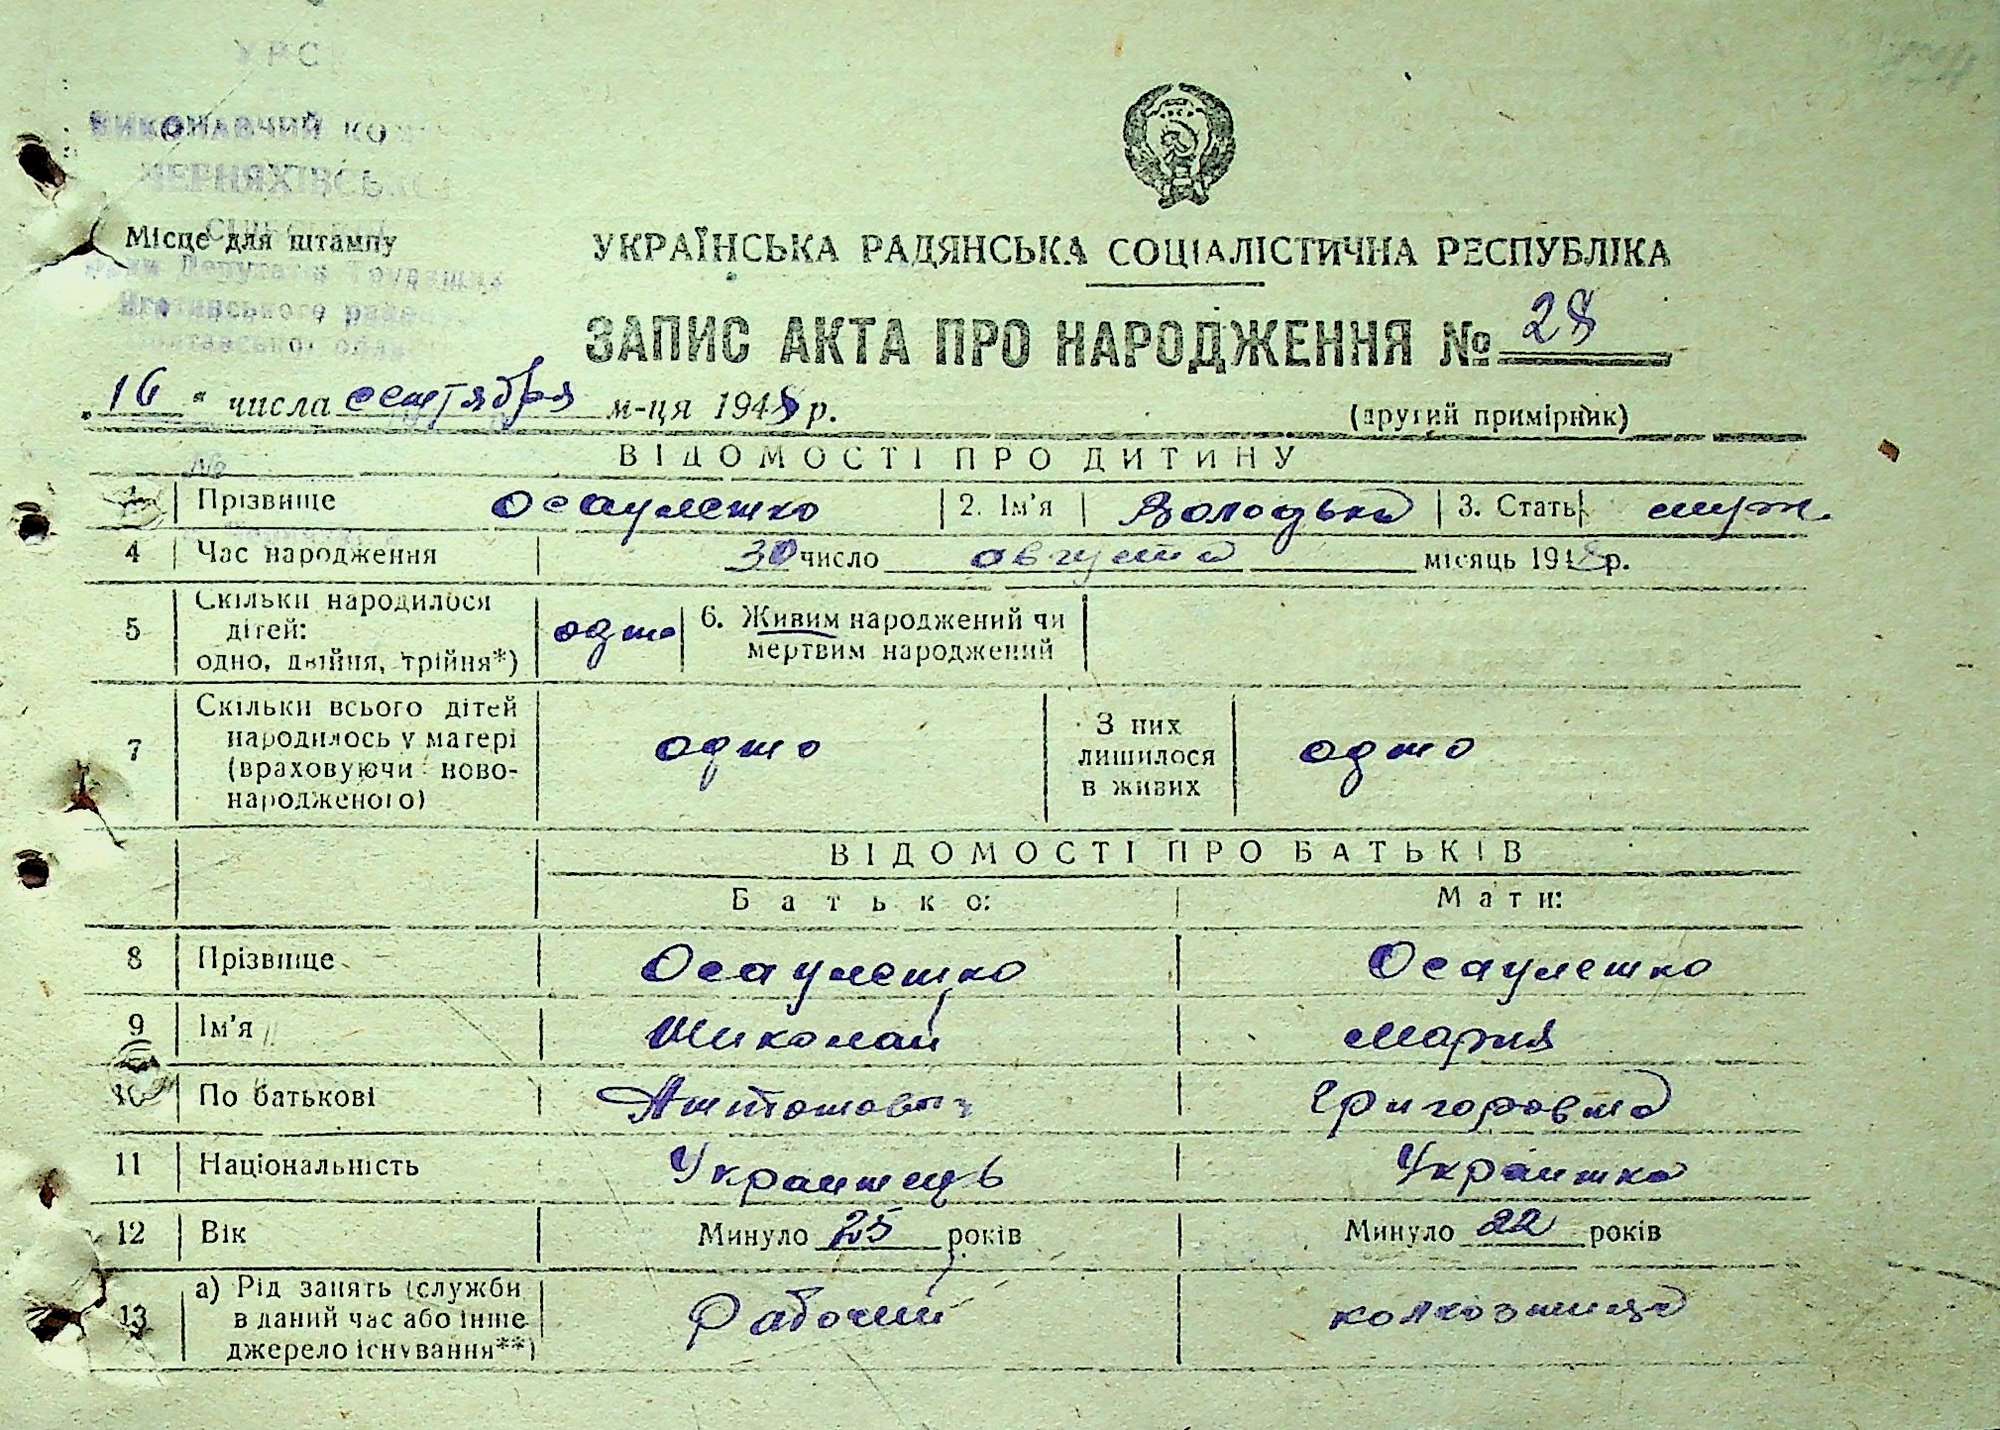 УРС
ВИКОНАВЧИЙ
ЧЕРНЯХІВСЬКО
Місце для штампу
Ради Депутатів Трудящих
УКРАЇНСЬКА РАДЯНСЬКА СОЦІАЛІСТИЧНА РЕСПУБЛІКА
ЗАПИС АКТА ПРО НАРОДЖЕННЯ № 28
„16“ числа сентября м-ця 1948 р.
(другий примірник)
ВІДОМОСТІ ПРО ДИТИНУ
1 Прізвище Осауленко 2. Ім'я 3. Стать муж.
4 Час народження 30 число августа місяць 1948 р.
5 Скільки народилося
дітей:
одно, двійня, трійня*) одно 6. Живим народжений чи
мертвим народжений
7 Скільки всього дітей
народилось у матері
(враховуючи ново-
народженого) одно З них
лишилося
в живих одно
ВІДОМОСТІ ПРО БАТЬКІВ
Батько: Мати:
8 Прізвище Осауленко Осауленко
9 Ім'я Николай Мария
10 По батькові Антонович Григоровна
11 Національність Украинець Украинка
12 Вік Минуло 25 років Минуло 22 років
13 а) Рід занять (служби
в даний час або інше
джерело існування**) Рабочий колхозница